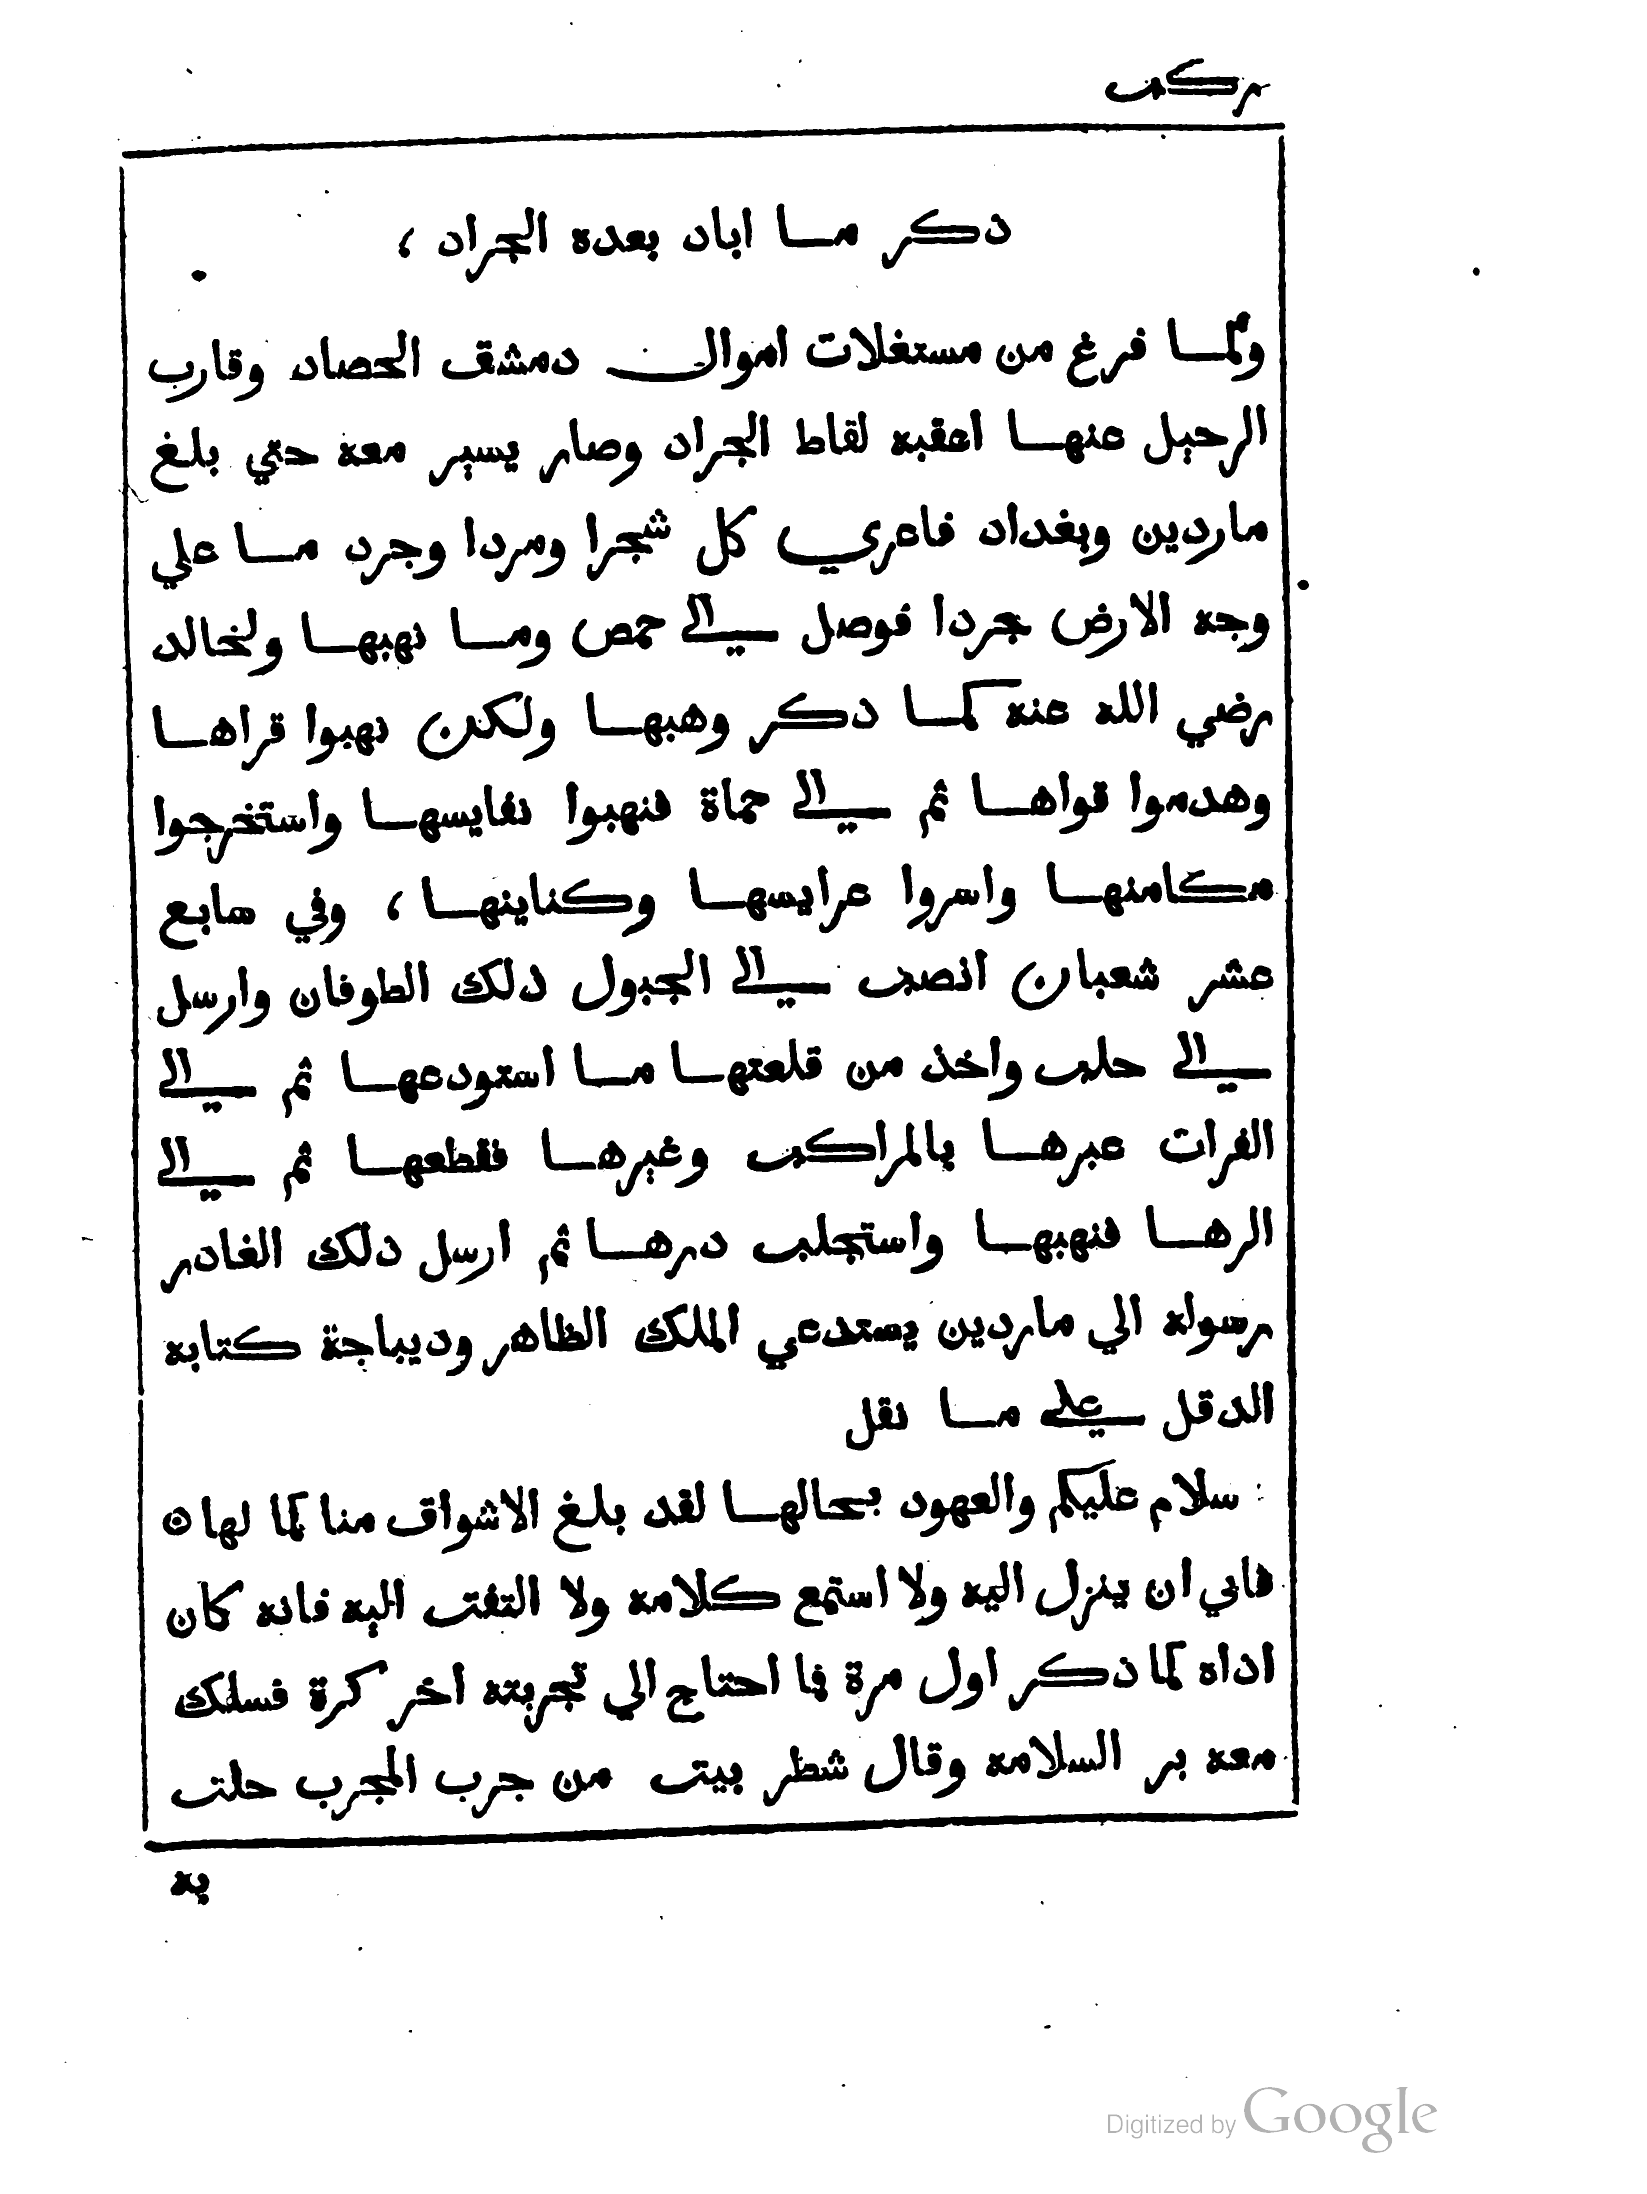 ركب
ذكر مـا اباد بعده الجراد ،
ولمـا فرغ من مستغلات اموال دمشق الحصاد وقارب
الرحيل عنهـا اعقبه لقاط الجراد وصار يسير معه حتي بلغ
ماردين وبغداد فاعري كل شجرا ومردا وجرد مـا علي
وجه الارض جردا فوصل الي حمص ومـا نهبهـا ولخالد
رضي الله عنه كمـا ذكر وهبهـا ولكن نهبوا قراهـا
وهدموا قواهـا ثم الي حماة فنهبوا نفايسهـا واستخرجوا
مكامنهـا واسروا عرايسهـا وكناينهـا ، وفي سابع
عشر شعبان انصب الي الجبول ذلك الطوفان وارسل
الي حلب واخذ من قلعتهـا مـا استودعهـا ثم الي
الفرات عبرهـا بالمراكب وغيرهـا فقطعهـا ثم الي
الرهـا فنهبهـا واستجلب درهـا ثم ارسل دلك الغادر
رسوله الي ماردين يستدعي الملك الظاهر وديباجة كتابه
الدقل علي مـا نقل
سلام عليكم والعهود بحالهـا لقد بلغ الاشواق منا كما لها ه
فابي ان ينزل اليه ولا استمع كلامه ولا التفت اليه فانه كان
اداه كما ذكر اول مرة فما احتاج الي تجربته اخر كرة فسلك
معه بر السلامه وقال شطر بيت من جرب المجرب حلت
به
Digitized by Google